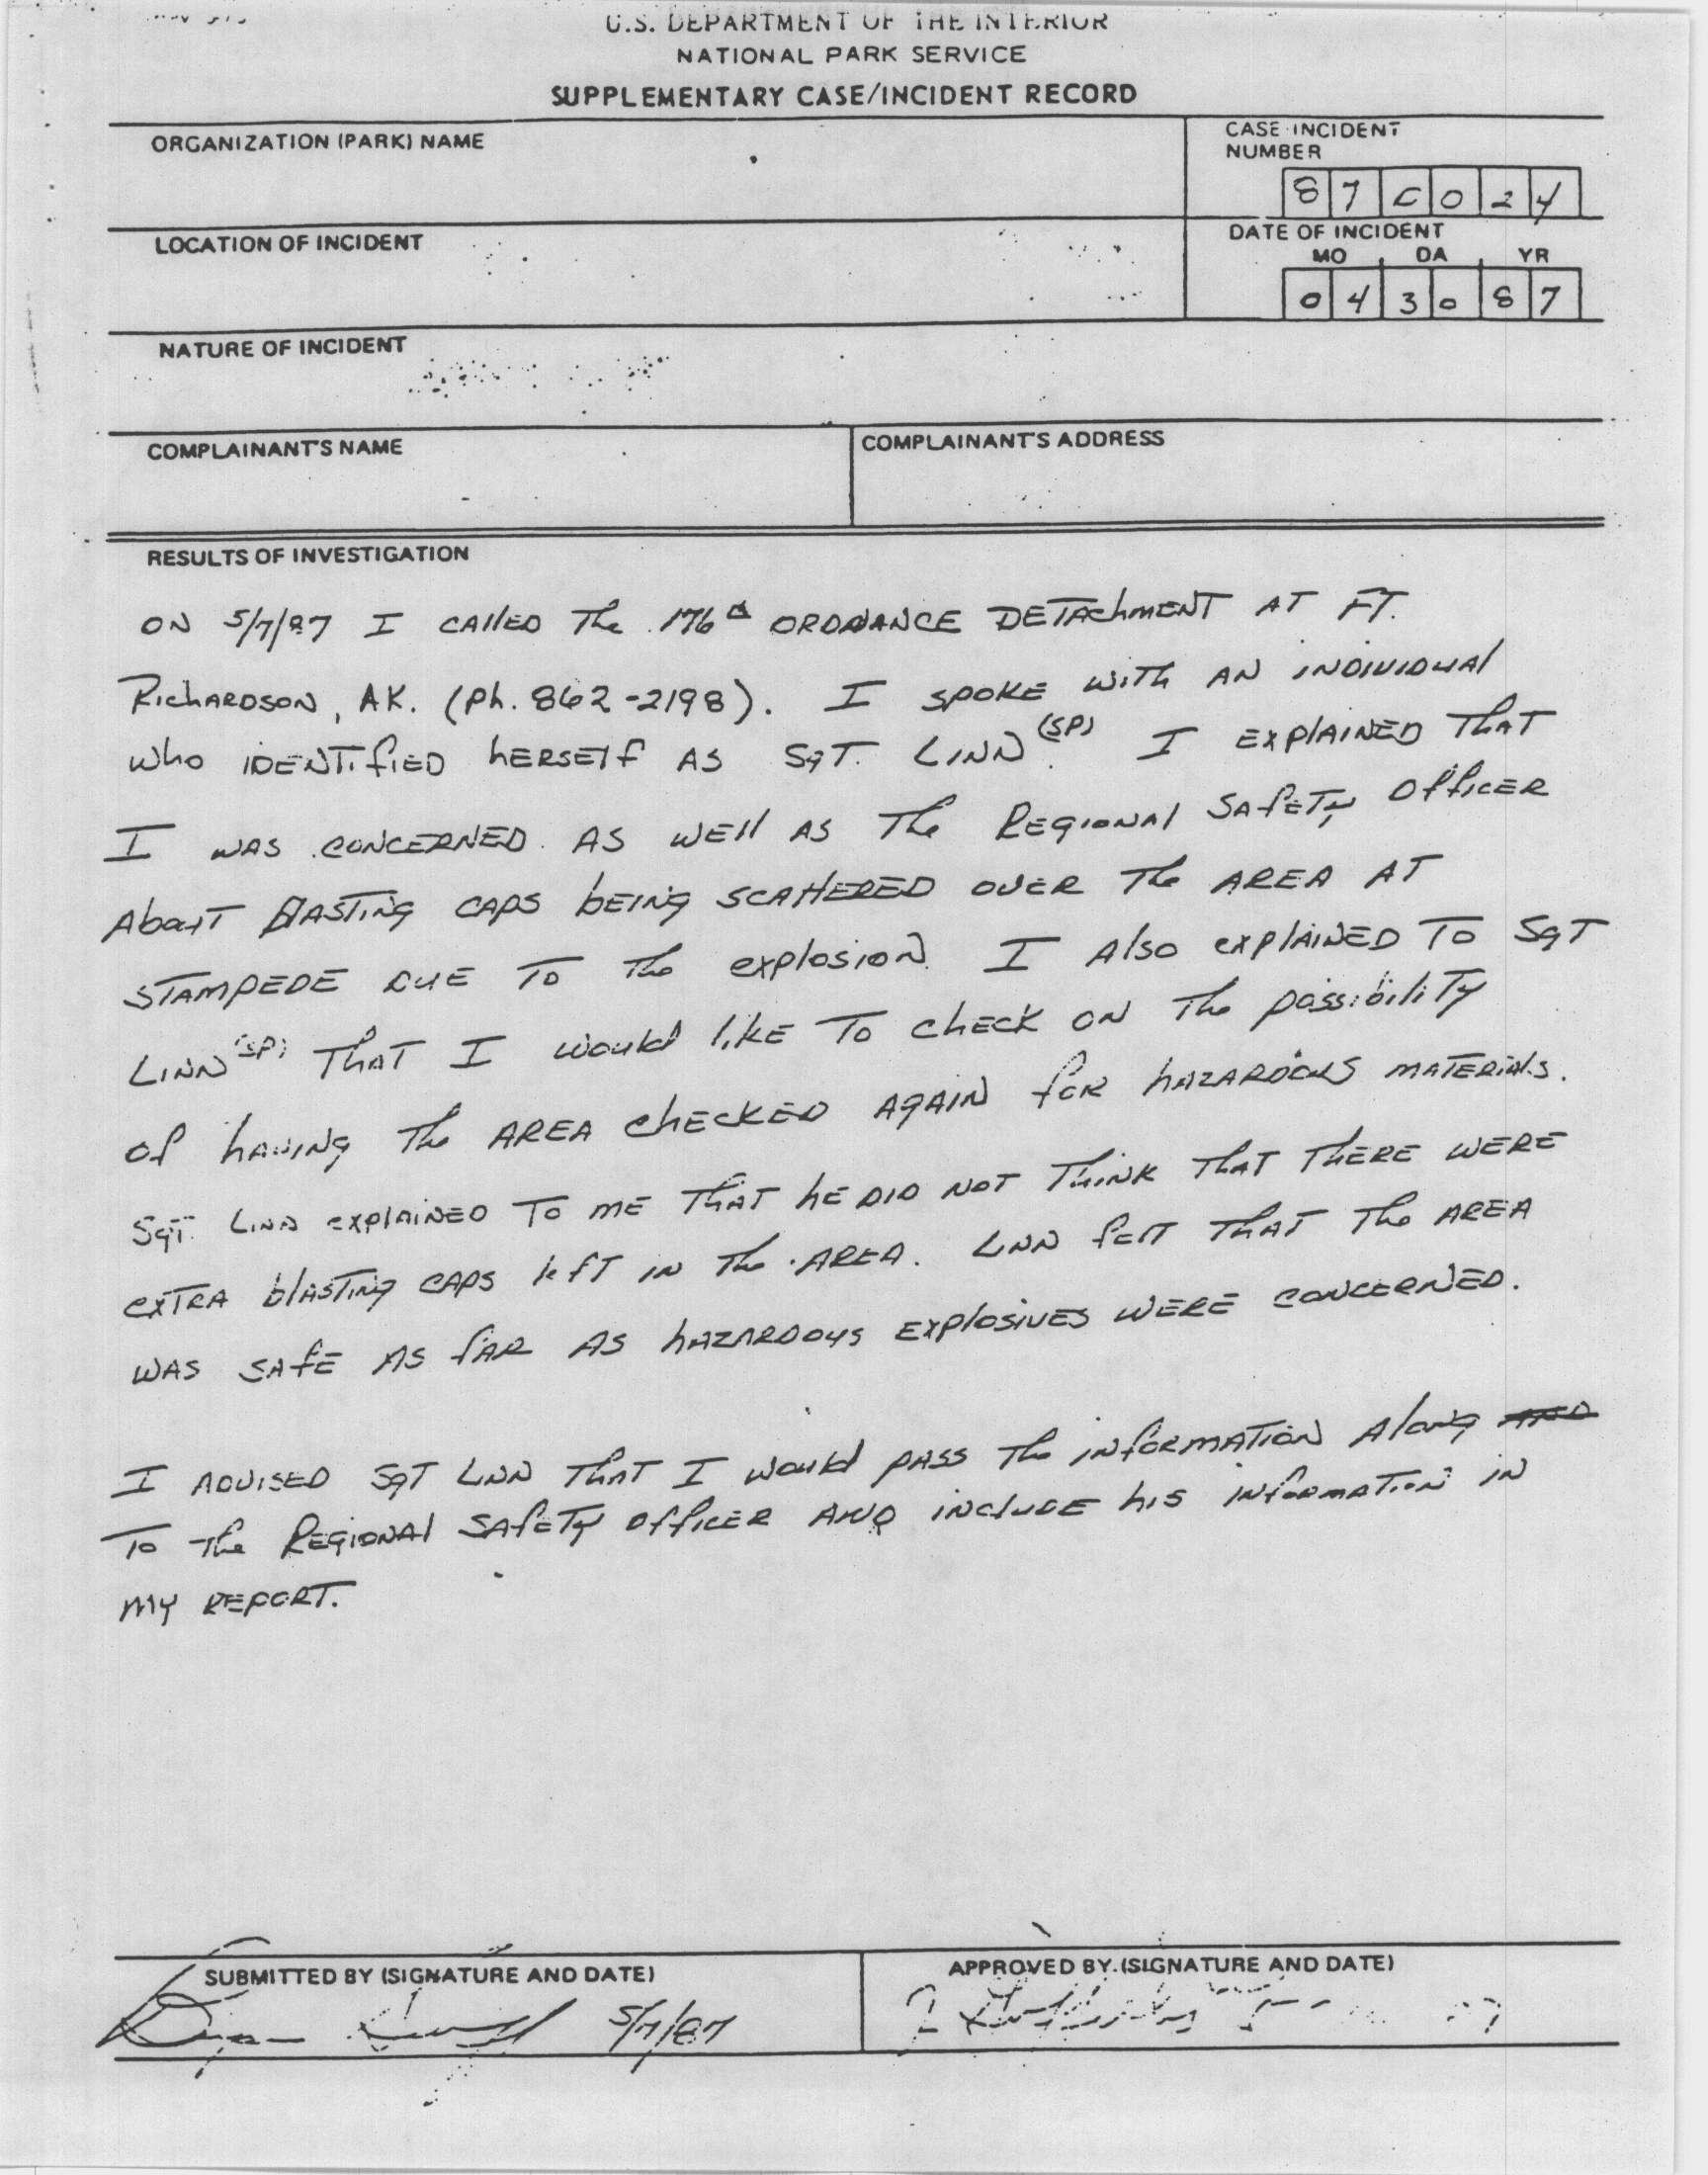 U.S. DEPARTMENT OF THE INTERIOR
NATIONAL PARK SERVICE
SUPPLEMENTARY CASE/INCIDENT RECORD
ORGANIZATION (PARK) NAME
CASE INCIDENT
NUMBER
87C024
LOCATION OF INCIDENT
DATE OF INCIDENT
MO DA YR
04 30 87
NATURE OF INCIDENT
COMPLAINANT'S NAME
COMPLAINANT'S ADDRESS
RESULTS OF INVESTIGATION
ON 5/7/87 I CALLED The 176th ORDNANCE DETAChMENT AT FT.
RIChARDSON, AK. (Ph. 862-2198). I SPOKE WITh AN INDIVIDUAL
Who IDENTIFIED hERSELF AS SGT. LINN (SP). I EXPLAINED ThAT
I WAS CONCERNED AS WELL AS The REGIONAL SAFETY OFFICER
About BLASTING CAPS bEING SCATTERED OVER The AREA AT
STAMPEDE DUE TO The explosion. I Also explAINED TO SGT
LINN (SP) ThAT I would LIKE TO ChECK ON The possibiliTy
Of hAVING The AREA ChECKED AGAIN FOR hAZARDOUS MATERIALS.
SGT. LINN explAINED TO ME ThAT hE DID NOT ThINK ThAT ThERE WERE
EXTRA blASTING CAPS lEFT IN The AREA. LINN FELT ThAT The AREA
WAS SAFE AS FAR AS hAZARDOUS EXPLOSIVES WERE CONCERNED.
I ADVISED SGT LINN ThAT I would PASS The INFORMATION Along AND
TO The REGIONAL SAFETY OFFICER AND INCLUDE hIS INFORMATION IN
MY REPORT.
SUBMITTED BY (SIGNATURE AND DATE)
APPROVED BY (SIGNATURE AND DATE)
5/7/87